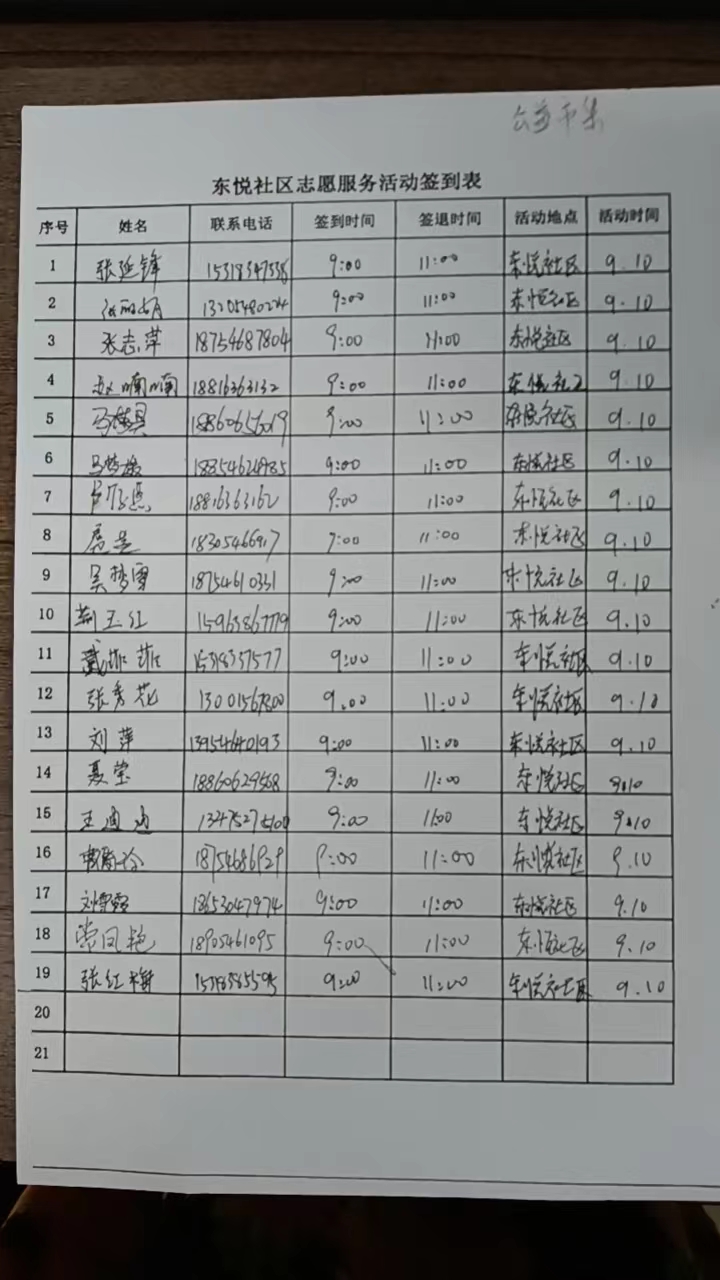 公益市集
东悦社区志愿服务活动签到表
序号 姓名 联系电话 签到时间 签退时间 活动地点 活动时间
1 张延锋 15318347538 9:00 11:00 东悦社区 9.10
2 9:00 11:00 东悦社区 9.10
3 张志萍 18754687804 9:00 11:00 东悦社区 9.10
4 赵喃喃 18816363132 9:00 11:00 东悦社区 9.10
5 18860656019 9:00 11:00 东悦社区 9.10
6 马梦 18854624985 9:00 11:00 东悦社区 9.10
7 18816363162 9:00 11:00 东悦社区 9.10
8 18305466917 9:00 11:00 东悦社区 9.10
9 吴梦雪 18754610331 9:00 11:00 东悦社区 9.10
10 荆玉红 15963867779 9:00 11:00 东悦社区 9.10
11 戴菲菲 15318337577 9:00 11:00 东悦社区 9.10
12 张秀花 13001567800 9.00 11:00 东悦社区 9.10
13 刘萍 13954640193 9:00 11:00 东悦社区 9.10
14 聂莹 18860629568 9:00 11:00 东悦社区 9.10
15 王通通 13475275100 9:00 11:00 东悦社区 9.10
16 18754686929 9:00 11:00 东悦社区 9.10
17 刘雪霞 18653047974 9:00 11:00 东悦社区 9.10
18 常凤艳 18905461095 9:00 11:00 东悦社区 9.10
19 张红梅 9:00 11:00 东悦社区 9.10
20
21